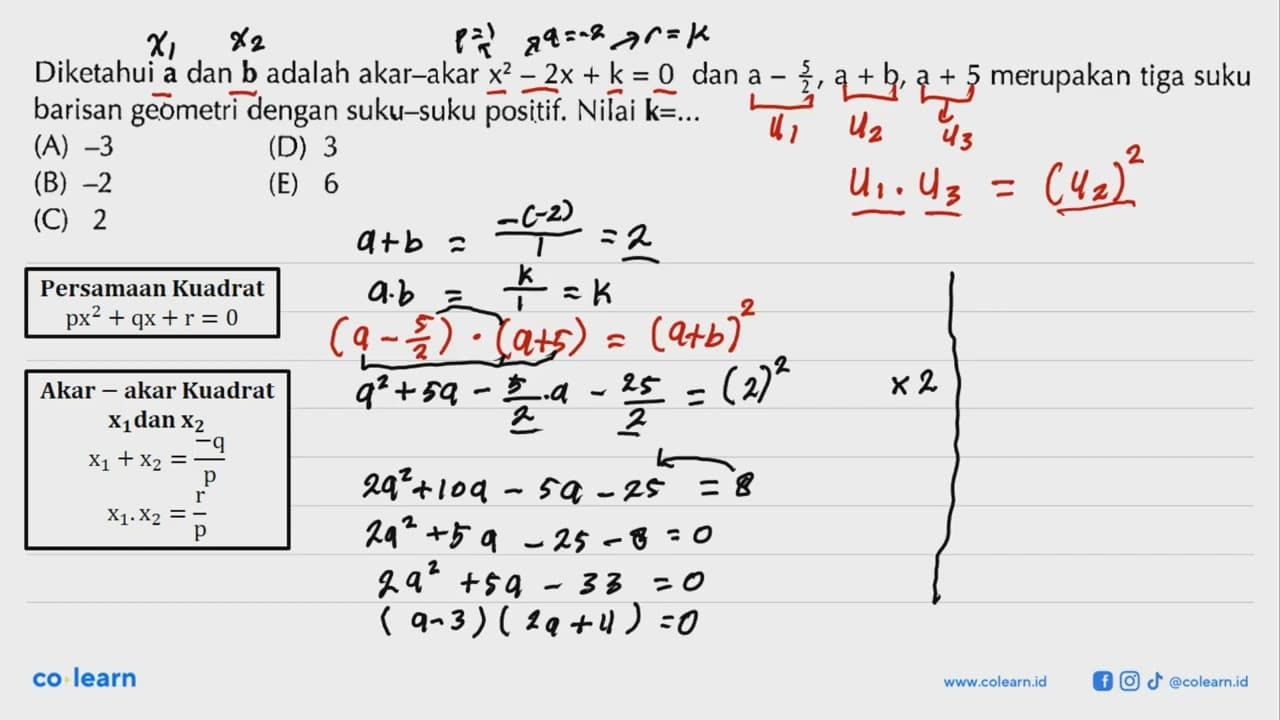 x₁ x₂ p=1 q=-2 → r=k
Diketahui a dan b adalah akar–akar x² – 2x + k = 0 dan a – 5/2, a + b, a + 5 merupakan tiga suku
barisan geometri dengan suku–suku positif. Nilai k=...
u₁ u₂ u₃
(A) –3 (D) 3
(B) –2 (E) 6
(C) 2
u₁ . u₃ = (u₂)²
a+b = -(-2)/1 = 2
a.b = k/1 = k
(a - 5/2) . (a+5) = (a+b)²
a² + 5a - 5/2 .a - 25/2 = (2)² x 2
2a² + 10a - 5a - 25 = 8
2a² + 5a - 25 - 8 = 0
2a² + 5a - 33 = 0
(a-3)(2a+11) = 0
Persamaan Kuadrat
px² + qx + r = 0
Akar – akar Kuadrat
x₁ dan x₂
x₁ + x₂ = –q/p
x₁. x₂ = r/p
co learn
www.colearn.id
@colearn.id